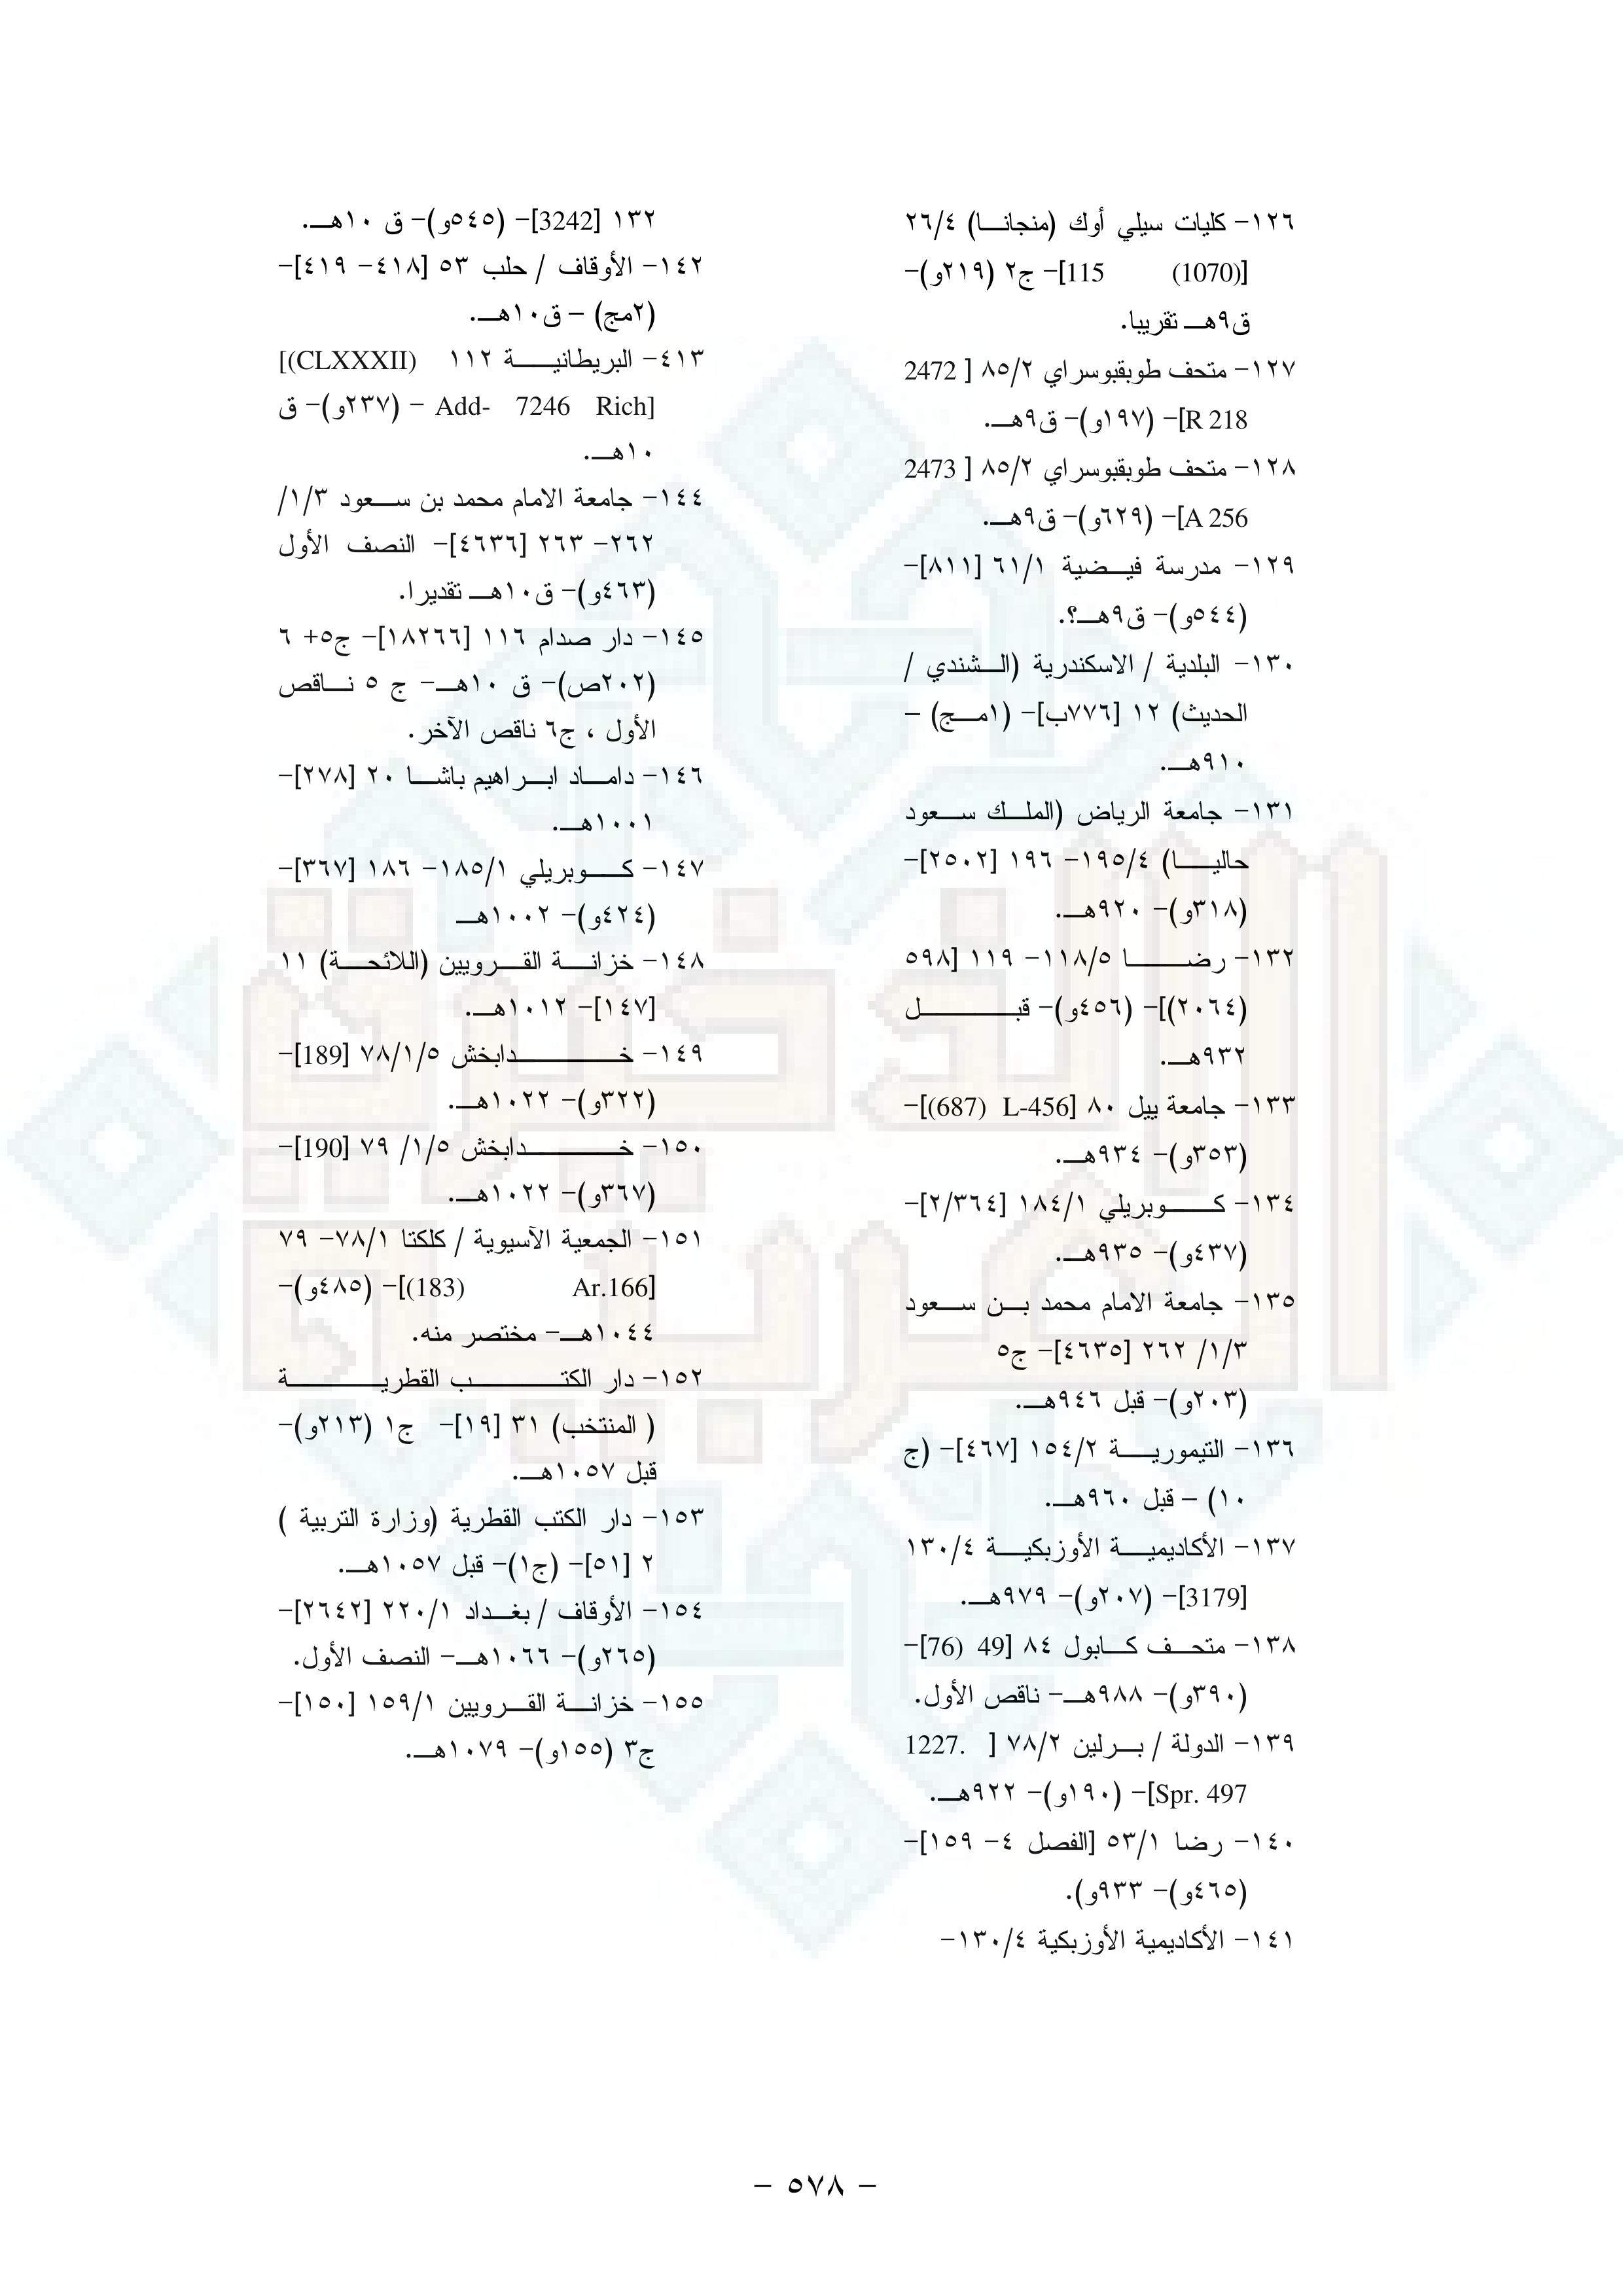 ١٢٦- كليات سيلي أوك (منجانـا) ٢٦/٤
[115 (1070)]- ج٢ (٢١٩و)-
ق٩هـ تقريبا.
١٢٧- متحف طوبقبوسراي ٨٥/٢ [ 2472
R 218]- (١٩٧و)- ق٩هـ.
١٢٨- متحف طوبقبوسراي ٨٥/٢ [ 2473
A 256]- (٦٢٩و)- ق٩هـ.
١٢٩- مدرسة فيـضية ٦١/١ [٨١١]-
(٥٤٤و)- ق٩هـ؟.
١٣٠- البلدية / الاسكندرية (الـشندي /
الحديث) ١٢ [٧٧٦ب]- (١مـج) –
٩١٠هـ.
١٣١- جامعة الرياض (الملـك سـعود
حاليـا) ١٩٥/٤- ١٩٦ [٢٥٠٢]-
(٣١٨و)- ٩٢٠هـ.
١٣٢- رضـا ١١٨/٥- ١١٩ [٥٩٨
(٢٠٦٤)]- (٤٥٦و)- قبـل
٩٣٢هـ.
١٣٣- جامعة ييل ٨٠ [L-456 (687)]-
(٣٥٣و)- ٩٣٤هـ.
١٣٤- كـوبريلي ١٨٤/١ [٢/٣٦٤]-
(٤٣٧و)- ٩٣٥هـ.
١٣٥- جامعة الامام محمد بـن سـعود
٣/١/ ٢٦٢ [٤٦٣٥]- ج٥
(٢٠٣و)- قبل ٩٤٦هـ.
١٣٦- التيموريـة ١٥٤/٢ [٤٦٧]- (ج
١٠) – قبل ٩٦٠هـ.
١٣٧- الأكاديميـة الأوزبكيـة ١٣٠/٤
[3179]- (٢٠٧و)- ٩٧٩هـ.
١٣٨- متحـف كـابول ٨٤ [49 (76)]-
(٣٩٠و)- ٩٨٨هـ- ناقص الأول.
١٣٩- الدولة / بـرلين ٧٨/٢ [ 1227.
Spr. 497]- (١٩٠و)- ٩٢٢هـ.
١٤٠- رضا ٥٣/١ [الفصل ٤- ١٥٩]-
(٤٦٥و)- ٩٣٣و).
١٤١- الأكاديمية الأوزبكية ١٣٠/٤-
١٣٢ [3242]- (٥٤٥و)- ق ١٠هـ.
١٤٢- الأوقاف / حلب ٥٣ [٤١٨- ٤١٩]-
(٢مج) – ق١٠هـ.
٤١٣- البريطانيـة ١١٢ (CLXXXII)]
[Add- 7246 Rich - (٢٣٧و)- ق
١٠هـ.
١٤٤- جامعة الامام محمد بن سـعود ٣/١/
٢٦٢- ٢٦٣ [٤٦٣٦]- النصف الأول
(٤٦٣و)- ق١٠هـ تقديرا.
١٤٥- دار صدام ١١٦ [١٨٢٦٦]- ج٥+ ٦
(٢٠٢ص)- ق ١٠هـ- ج ٥ نـاقص
الأول ، ج٦ ناقص الآخر.
١٤٦- دامـاد ابـراهيم باشـا ٢٠ [٢٧٨]-
١٠٠١هـ.
١٤٧- كـوبريلي ١٨٥/١- ١٨٦ [٣٦٧]-
(٤٢٤و)- ١٠٠٢هـ
١٤٨- خزانـة القـرويين (اللائحـة) ١١
[١٤٧]- ١٠١٢هـ.
١٤٩- خـدابخش ٧٨/١/٥ [189]-
(٣٢٢و)- ١٠٢٢هـ.
١٥٠- خـدابخش ١/٥/ ٧٩ [190]-
(٣٦٧و)- ١٠٢٢هـ.
١٥١- الجمعية الآسيوية / كلكتا ٧٨/١- ٧٩
[Ar.166 (183)]- (٤٨٥و)-
١٠٤٤هـ- مختصر منه.
١٥٢- دار الكتـب القطريـة
( المنتخب) ٣١ [١٩]- ج١ (٢١٣و)-
قبل ١٠٥٧هـ.
١٥٣- دار الكتب القطرية (وزارة التربية )
٢ [٥١]- (ج١)- قبل ١٠٥٧هـ.
١٥٤- الأوقاف / بغـداد ٢٢٠/١ [٢٦٤٢]-
(٢٦٥و)- ١٠٦٦هـ- النصف الأول.
١٥٥- خزانـة القـرويين ١٥٩/١ [١٥٠]-
ج٣ (١٥٥و)- ١٠٧٩هـ.
- ٥٧٨ -